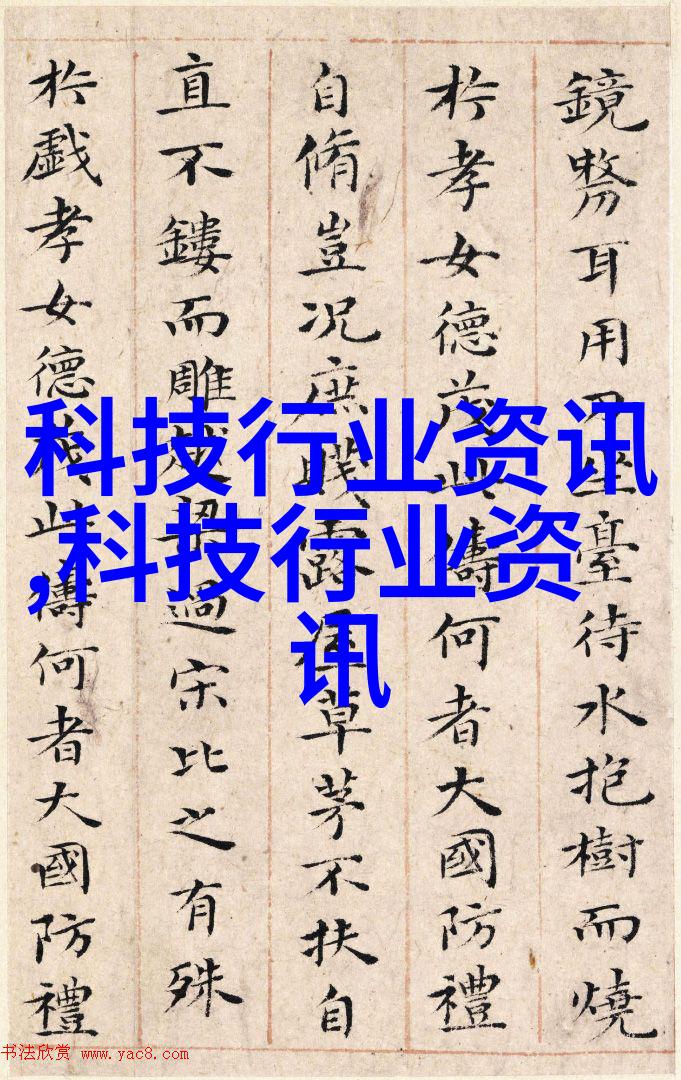 鏡剺耳用刀坐臺待水抱樹而燒
於孝女德茂此儔何者大國防禮
自脩豈况庶賤露屋草茅不扶自
直不鏤而雕越梁過宋比之有殊
於戲孝女德茂此儔何者大國防禮
科技行业资讯
,科技行业资
讯
书法欣赏 www.yac8.com